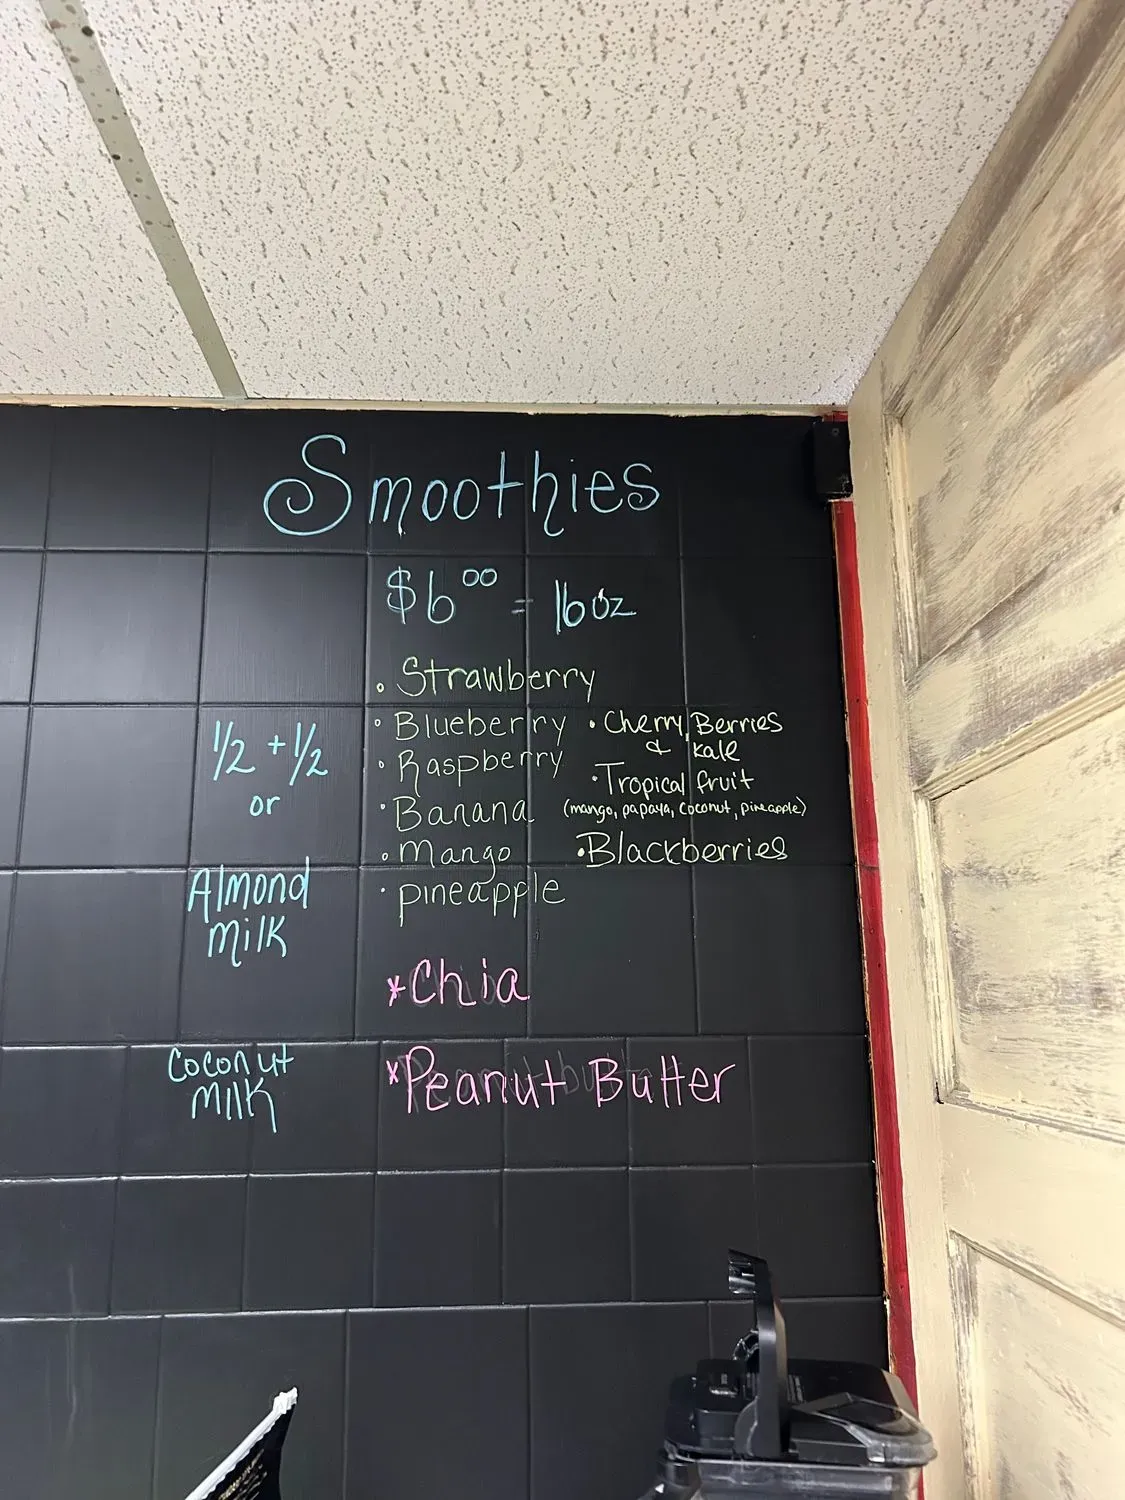 Smoothies
$6.00 = 16oz
• Strawberry
• Blueberry
• Raspberry
• Banana
• Mango
• pineapple
• Cherry, Berries
& kale
• Tropical fruit
(mango, papaya, coconut, pineapple)
• Blackberries
1/2 + 1/2
or
Almond
Milk
Coconut
Milk
*Chia
*Peanut Butter